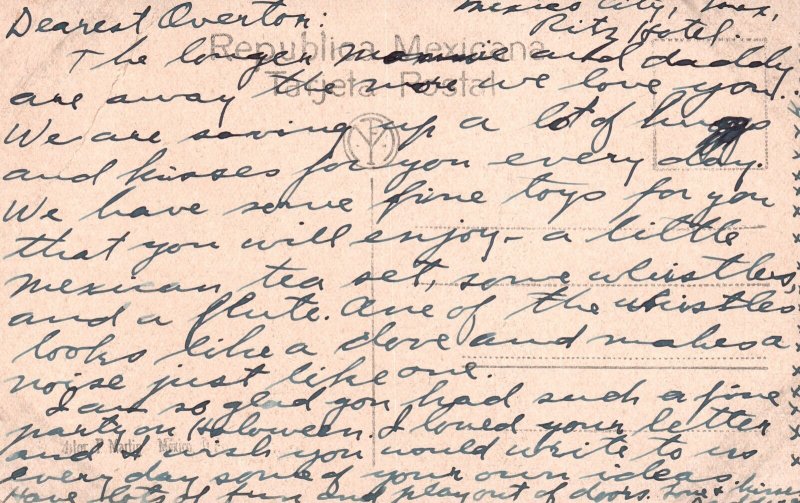 Mexico City, Mex,
Ritz Hotel.
Dearest Overton:
Republica Mexicana
Tarjeta Postal
The longer mommie and daddy
are away the more we love you.
We are saving up a lot of hugs
and kisses for you every day.
We have some fine toys for you
that you will enjoy - a little
mexican tea set, some whistles,
and a flute. One of the whistles
looks like a dove and makes a
noise just like one.
I am so glad you had such a fine
party on Haloween. I loved your letter
and I wish you would write to us
every day some of your own ideas.
Have lots of fun and play out of doors.
Mexico